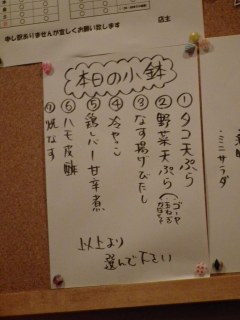 申し訳ありませんが宜しくお願い致します
店主
本日の小鉢
① タコ天ぷら
② 野菜天ぷら(ゴーヤ
③ なす揚げびたし
④ 冷やっこ
⑤ 鶏レバー甘辛煮
⑥ ハモ皮酢
⑦ 焼なす
以上より
選んで下さい
・ミニサラダ